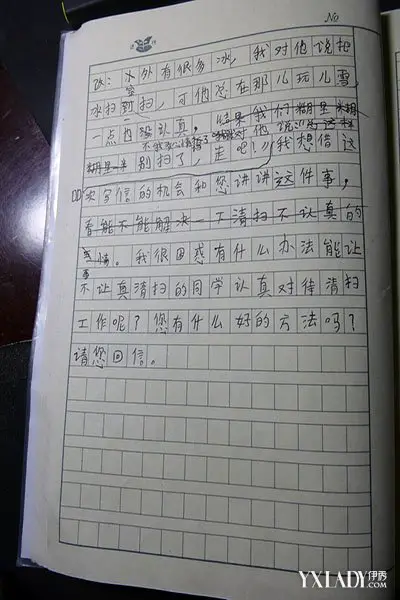 No
次：水外有很多冰，我对他说把
冰扫到扫，可他总在那儿玩儿雪，
一点也没认真，结果我们糊里糊
不我关心清了他说：“这样
糊里来别扫了，走吧！”我想借这
次写信的机会和您讲讲这件事，
看能不能解决一下清扫不认真的
事情。我很困惑有什么办法能让
不认真清扫的同学认真对待清扫
工作呢？您有什么好的方法吗？
请您回信。
YXLADY.com 伊秀